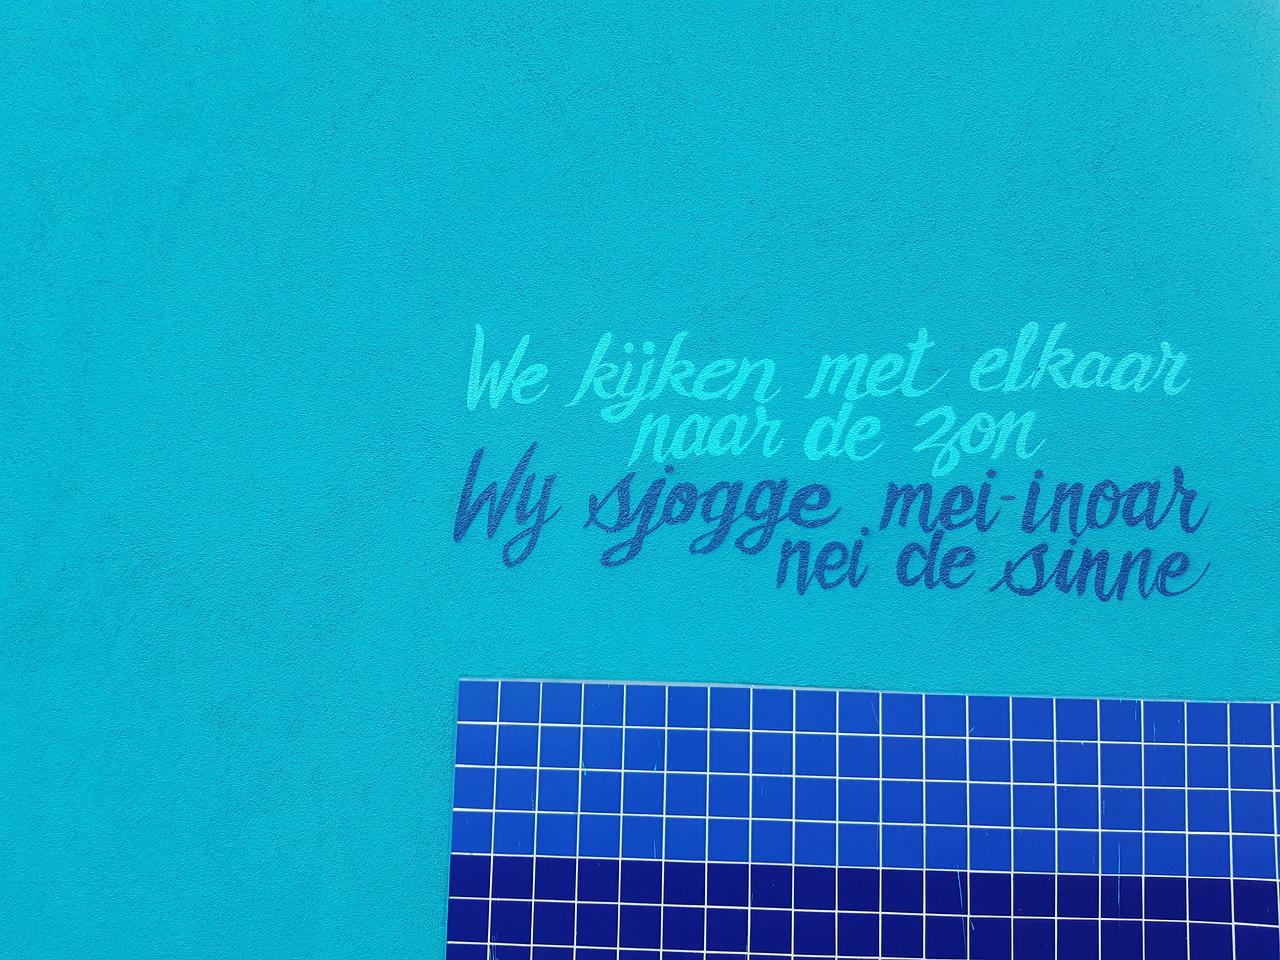 We kijken met elkaar
naar de zon
Wy sjogge mei-inoar
nei de sinne